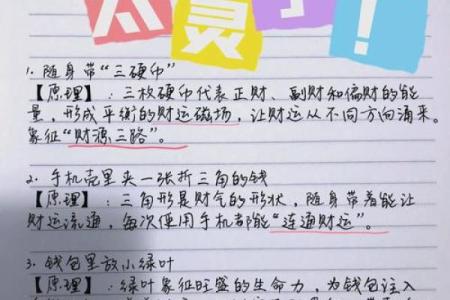 太灵了！
1. 随身带“三硬币”
【原理】：三枚硬币代表正财、副财和偏财的能
量，形成平衡的财运磁场，让财运从不同方向涌来。
象征“财源三路”。
2. 手机壳里夹一张折三角的钱
【原理】：三角形是财气的形状，随身带着能让
财运流通，每次使用手机都能“连通财运”。
3. 钱包里放小绿叶
【原理】：绿叶象征旺盛的生命力，为钱包注入